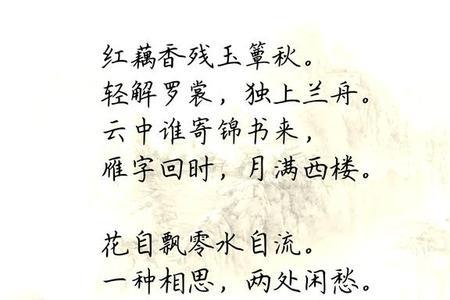 红藕香残玉簟秋。
轻解罗裳，独上兰舟。
云中谁寄锦书来，
雁字回时，月满西楼。
花自飘零水自流。
一种相思，两处闲愁。